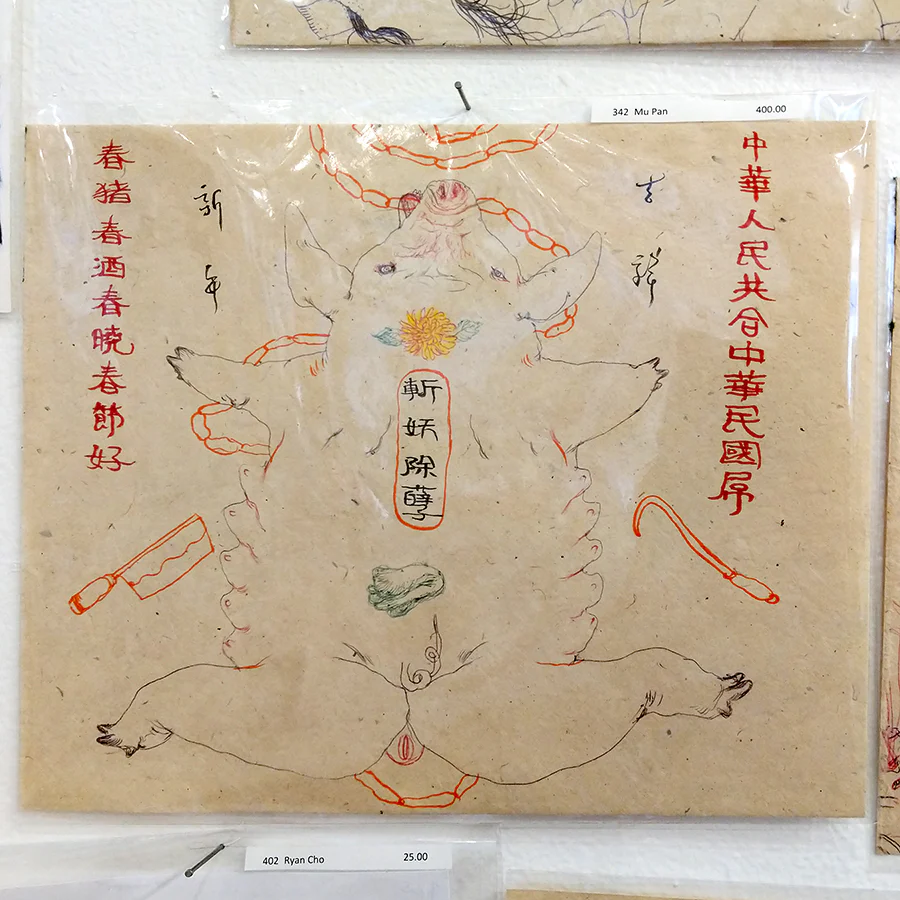 342 Mu Pan 400.00
中華人民共合中華民國屌
吉祥
新年
春猪春酒春曉春節好
斬妖除孽
402 Ryan Cho 25.00